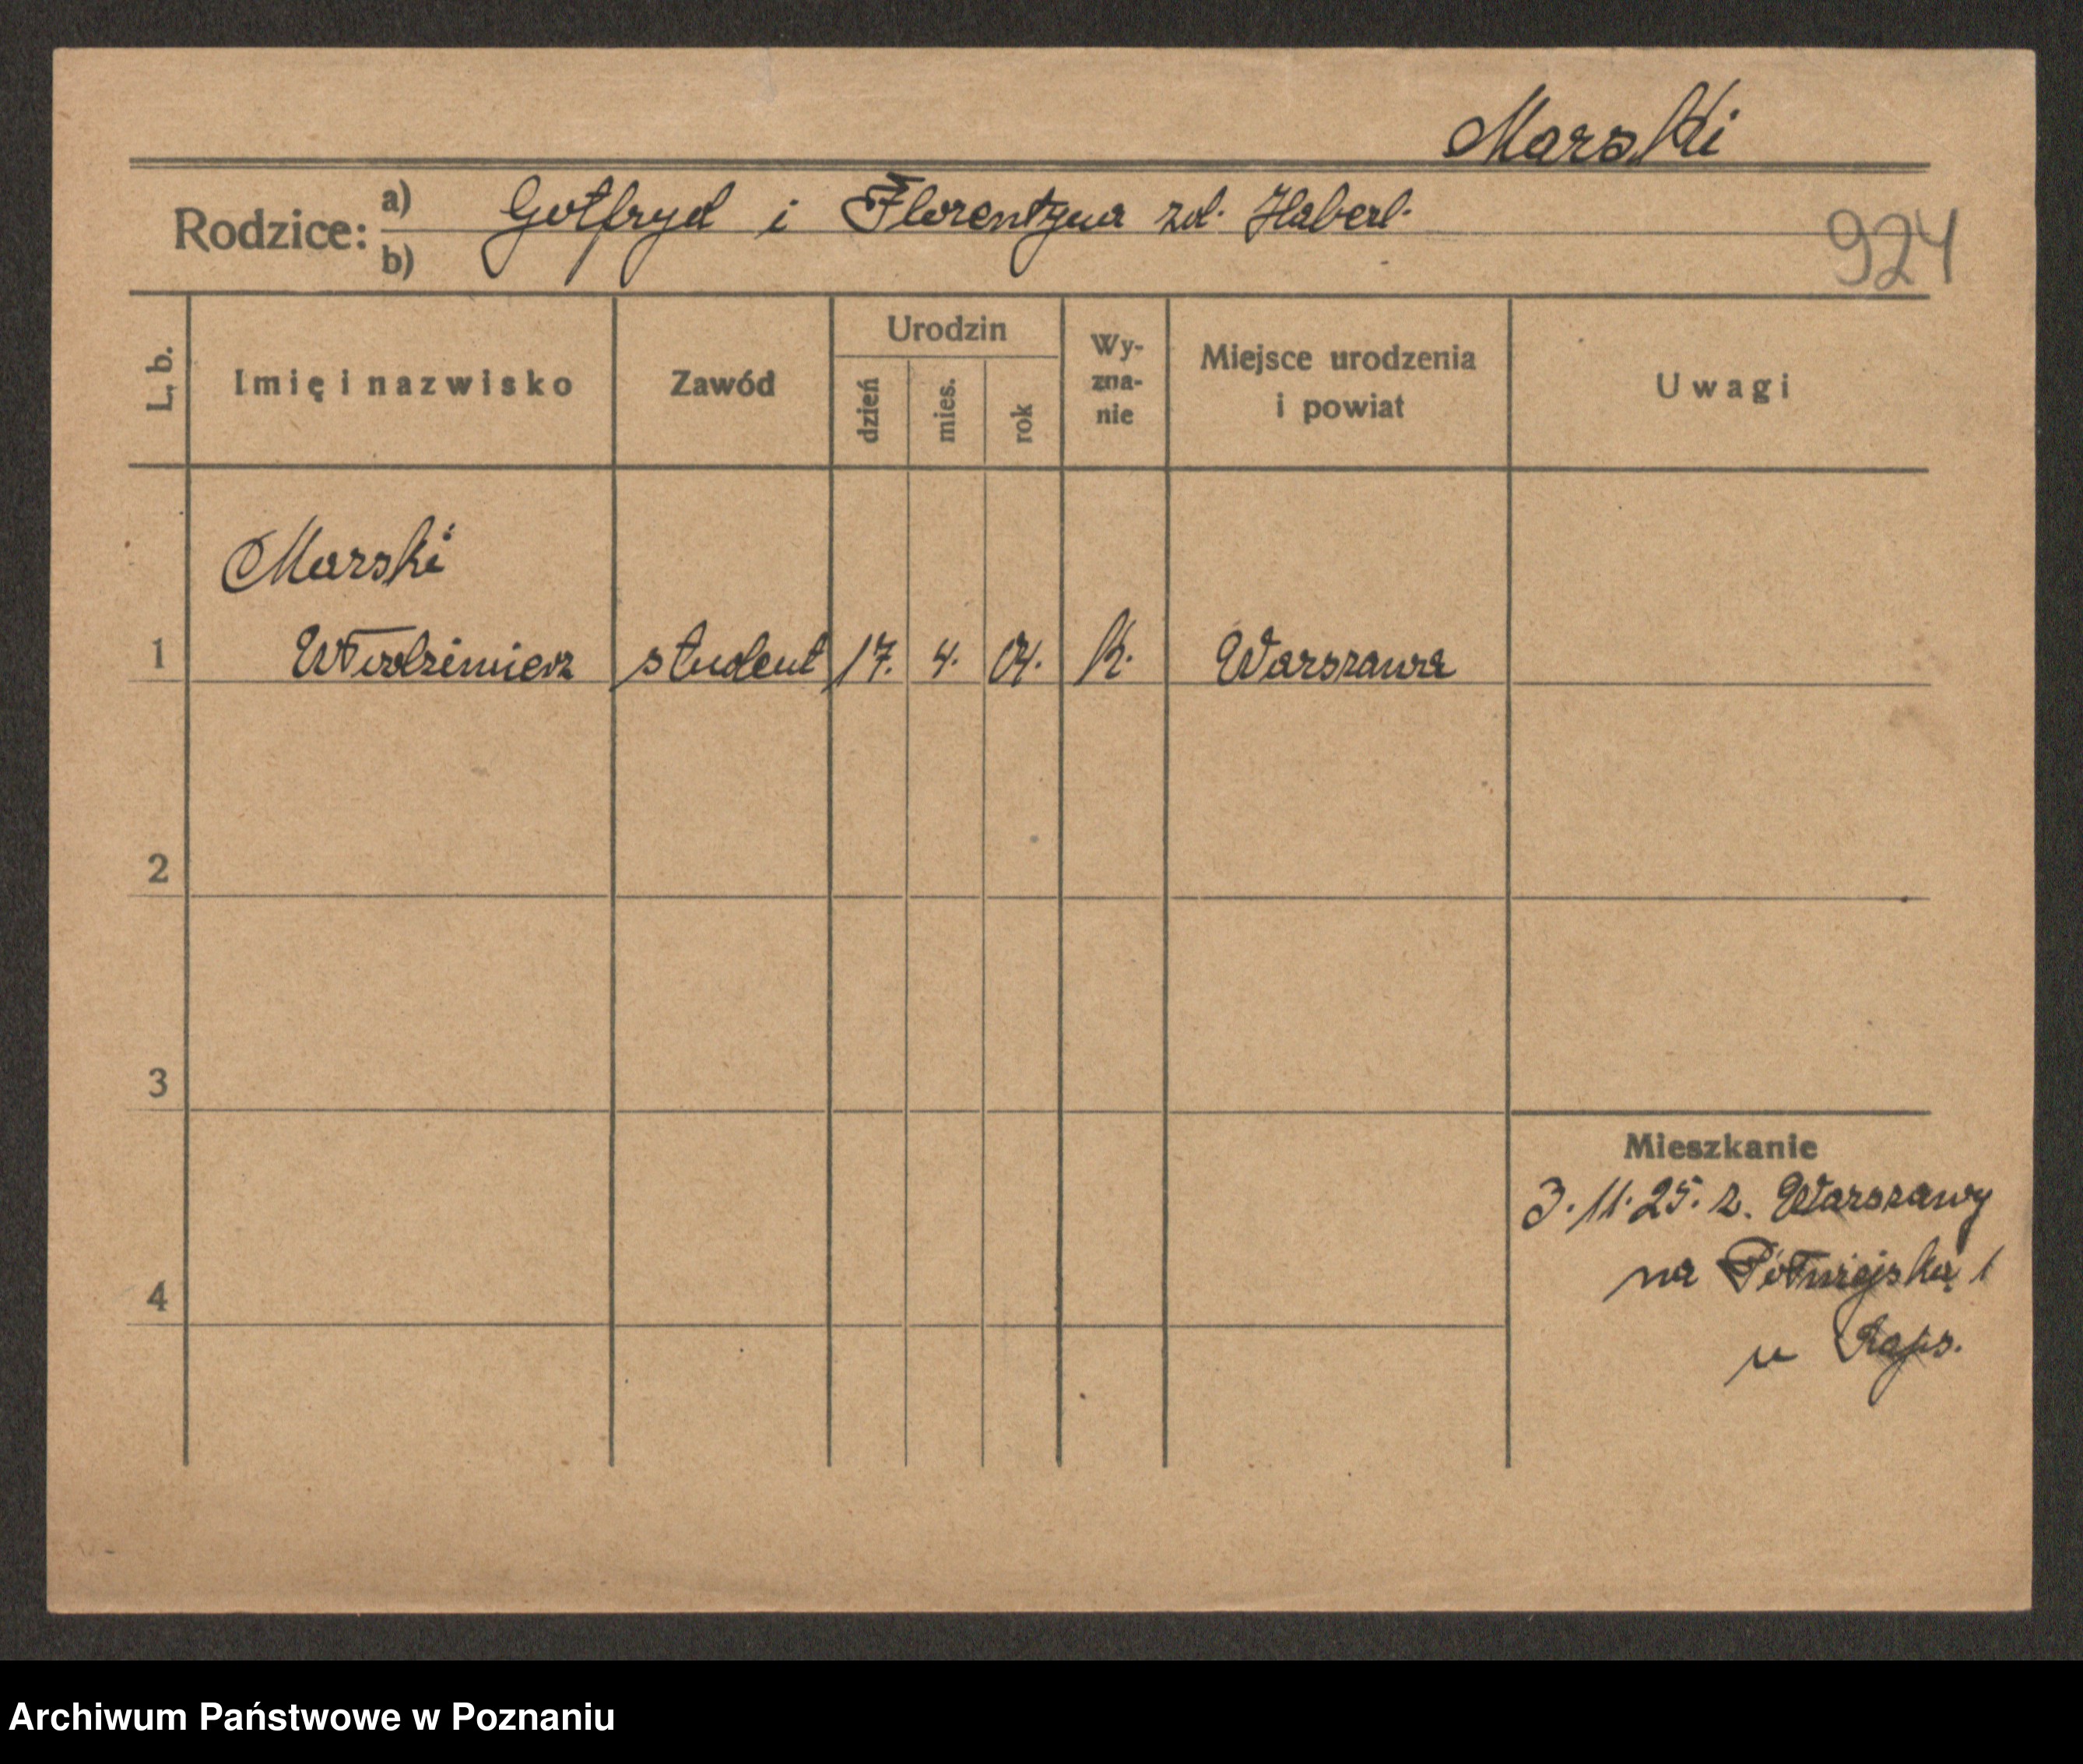 Marski
Rodzice: a) Gotfryd i Florentyna zd. Haberl.
b)
924
L. b.
Imię i nazwisko
Zawód
Urodzin
dzień
mies.
rok
Wy-
zna-
nie
Miejsce urodzenia
i powiat
Uwagi
Marski
1 Włodzimierz student 17. 4. 04. K. Warszawa
2
3
4
Mieszkanie
3.11.25. z. Warszawy
na Półwiejską 1
u
Archiwum Państwowe w Poznaniu